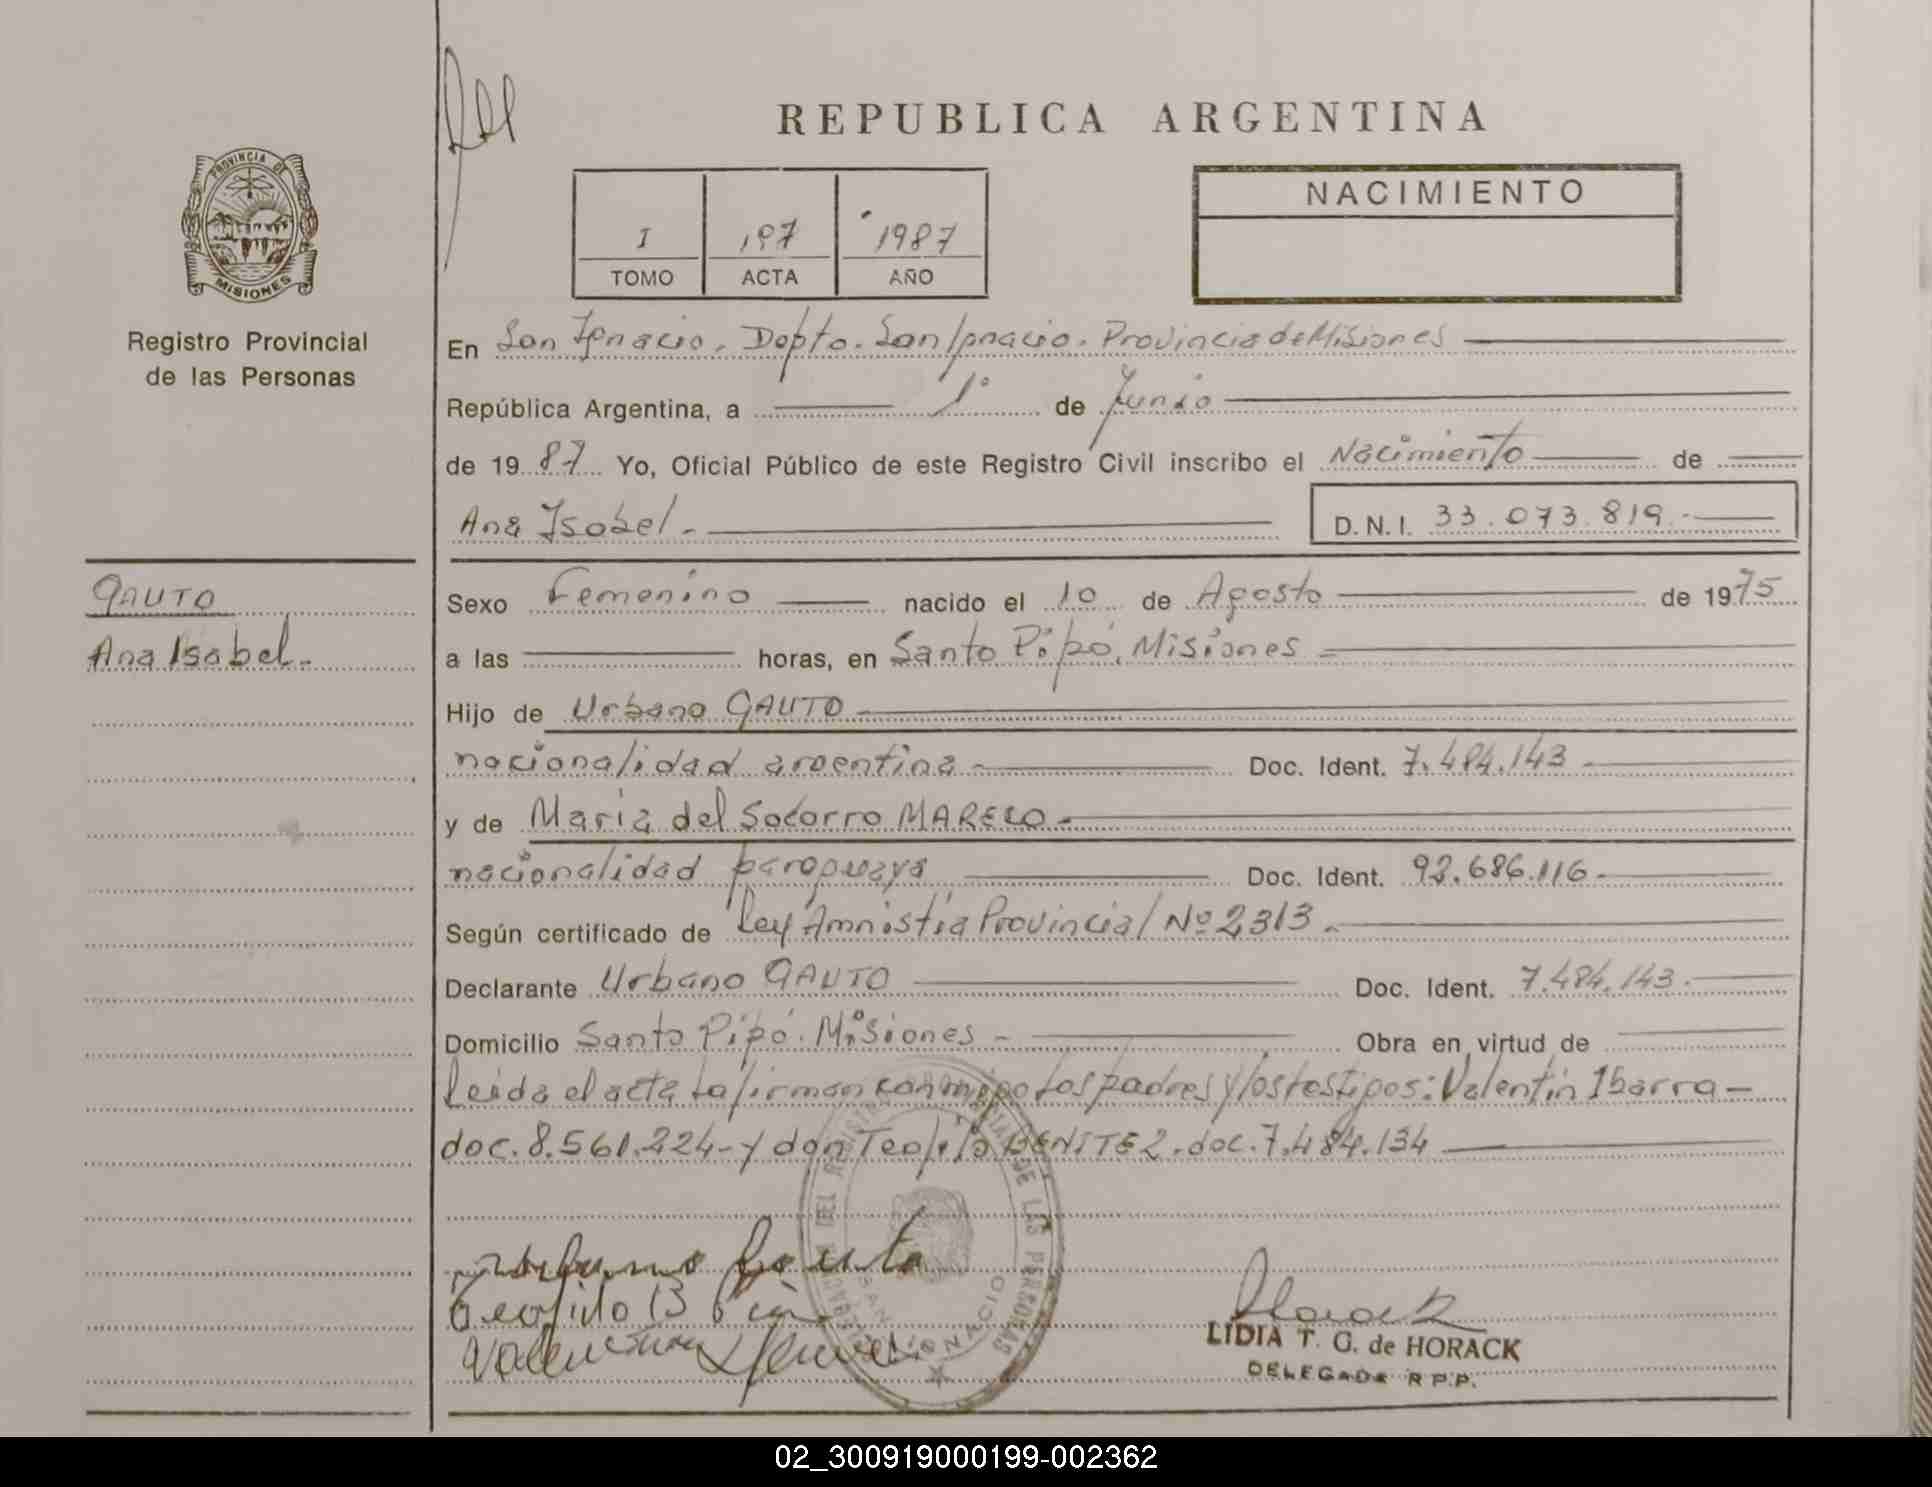 REPUBLICA ARGENTINA
PROVINCIA DE
MISIONES
Registro Provincial
de las Personas
I 197 1987
TOMO ACTA AÑO
NACIMIENTO
En San Ignacio. Dpto. San Ignacio. Provincia de Misiones
República Argentina, a 1° de Junio
de 1987 Yo, Oficial Público de este Registro Civil inscribo el Nacimiento de
Ana Isabel.-
D.N.I. 33.073.819.-
GAUTO
Ana Isabel.-
Sexo Femenino nacido el 10 de Agosto de 1975
a las horas, en Santo Pipó, Misiones
Hijo de Urbano GAUTO
nacionalidad argentina Doc. Ident. 7.484.143
y de Maria del Socorro MARECO.-
nacionalidad paraguaya Doc. Ident. 92.686.116.-
Según certificado de Ley Amnistia Provincial Nº 2313.-
Declarante Urbano GAUTO Doc. Ident. 7.484.143.-
Domicilio Santo Pipó. Misiones - Obra en virtud de
Leida el acta la firman conmigo los padres y los testigos: Valentin Ibarra -
doc. 8.561.224- y don Teofilo BENITEZ. doc. 7.484.134
Urbano Gauto
Horack
LIDIA T. G. de HORACK
DELEGADA R.P.P.
DEL REGISTRO PROVINCIAL DE LAS PERSONAS
SAN IGNACIO
02_300919000199-002362